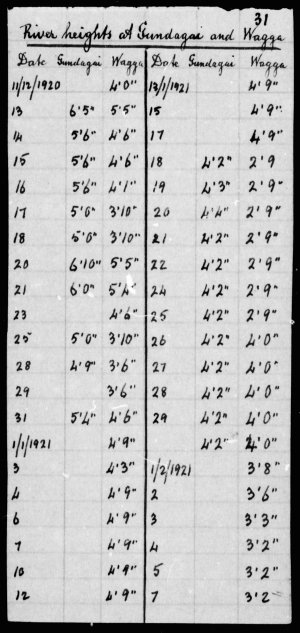 31
River heights at Gundagai and Wagga
Date Gundagai Wagga Date Gundagai Wagga
11/12/1920 4'0" 13/1/1921 4'9"
13 6'5" 5'5" 15 4'9"
14 5'6" 4'6" 17 4'9"
15 5'6" 4'6" 18 4'2" 2'9
16 5'6" 4'1" 19 4'3" 2'9"
17 5'0" 3'10" 20 4'4" 2'9"
18 5'0" 3'10" 21 4'2" 2'9"
20 6'10" 5'5" 22 4'2" 2'9"
21 6'0" 5'4" 24 4'2" 2'9"
23 4'6" 25 4'2" 2'9"
25 5'0" 3'10" 26 4'2" 4'0"
28 4'9" 3'6" 27 4'2" 4'0"
29 3'6" 28 4'2" 4'0"
31 5'4" 4'6" 29 4'2" 4'0"
1/1/1921 4'9" 4'2" 4'0"
3 4'3" 1/2/1921 3'8"
4 4'9" 2 3'6"
6 4'9" 3 3'3"
7 4'9" 4 3'2"
10 4'9" 5 3'2"
12 4'9" 7 3'2